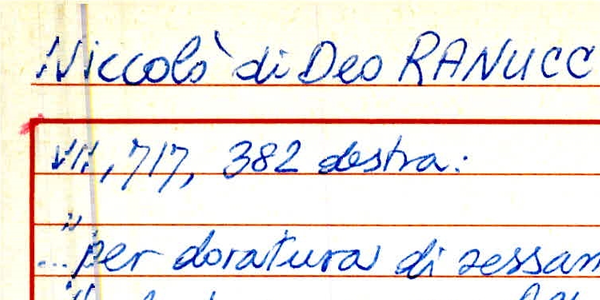 Niccolò di Deo RANUCC
VII, 717, 382 destra:
"...per doratura di sessan